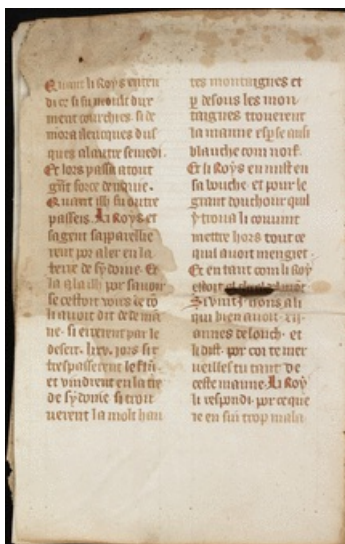 Quant li Roys enten
di ce si fu moult dure
ment courchies. si de
mora ileucques dus
ques al autre semedi.
Et lors passa a tout
gñt force deuque.
Quant illi fu outre
passeis. Li Roys et
sa gent sapparellie
rent por aler en la
terre de sydonie. Et
la ala illi por sauoir
se cestoit voirs ke co
li auoit dit de le ma
ne. si errerent par le
desert. jors si
trespasserent le
et vindrent en la tre
de sydonie si trou
uerent la molt hau
tes montaignes et
y desous les mon
taignes trouerent
la manne espse ausi
blanche com noif.
Et li Roys en mist en
sa bouche. et pour le
grant douchour quil
y troua li couuint
mettre hors tout ce
quil auoit mengiet
Et en tant com li Roy
estoit
Si vint hons a li
qui bien auoit .xij.
aunes de lonch. et
li dist. por coi te mer
ueilles tu tant de
ceste manne. Li Roy
li respondi. por ce que
ie en sui trop mala